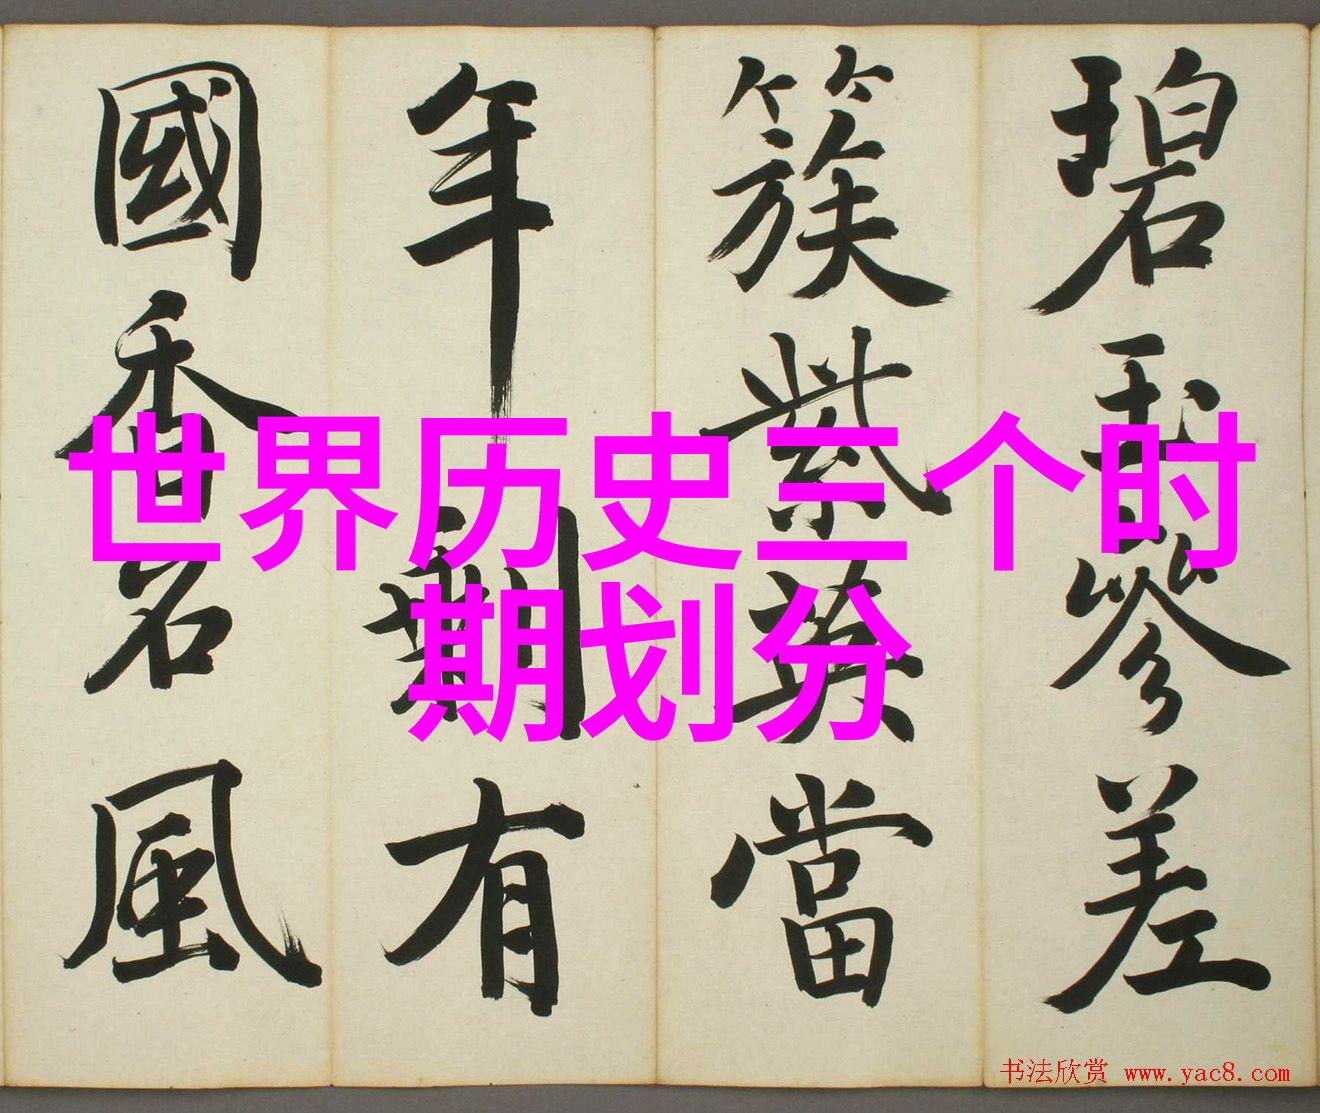 碧玉参差
簇紫英當
年剩有
國香名風
世界历史三个时
期划分
书法欣赏 www.yac8.com